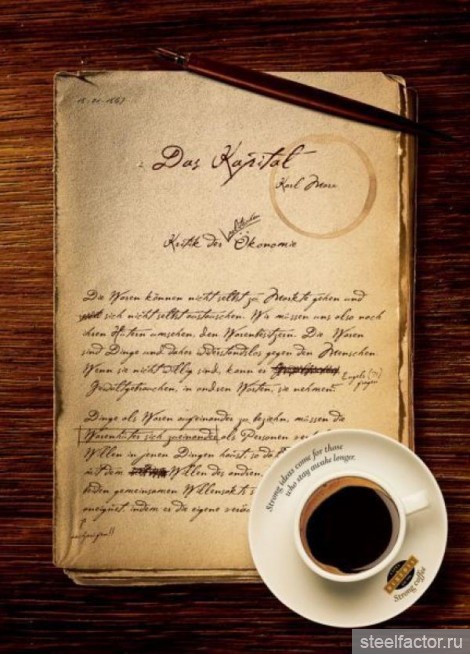 Das Kapital
Karl Marx
politischen
Kritik der Ökonomie
Die Waren können nicht selbst zu Markte gehen und
sich nicht selbst austauschen. Wir müssen uns also nach
ihren Hütern umsehen, den Warenbesitzern. Die Waren
sind Dinge und daher widerstandslos gegen den Menschen.
Wenn sie nicht willig sind, kann er
Engels
fragen
Gewalt gebrauchen, in andren Worten, sie nehmen.
Dinge als Waren aufeinander zu beziehn, müssen die
Warenhüter sich zueinander als Personen
Willen in jenen Dingen haust, so
mit dem Willen des andren,
beiden gemeinsamen Willensakts
aneignet, indem er die eigne
Strong ideas come for those
who stay awake longer.
Strong coffee
steelfactor.ru